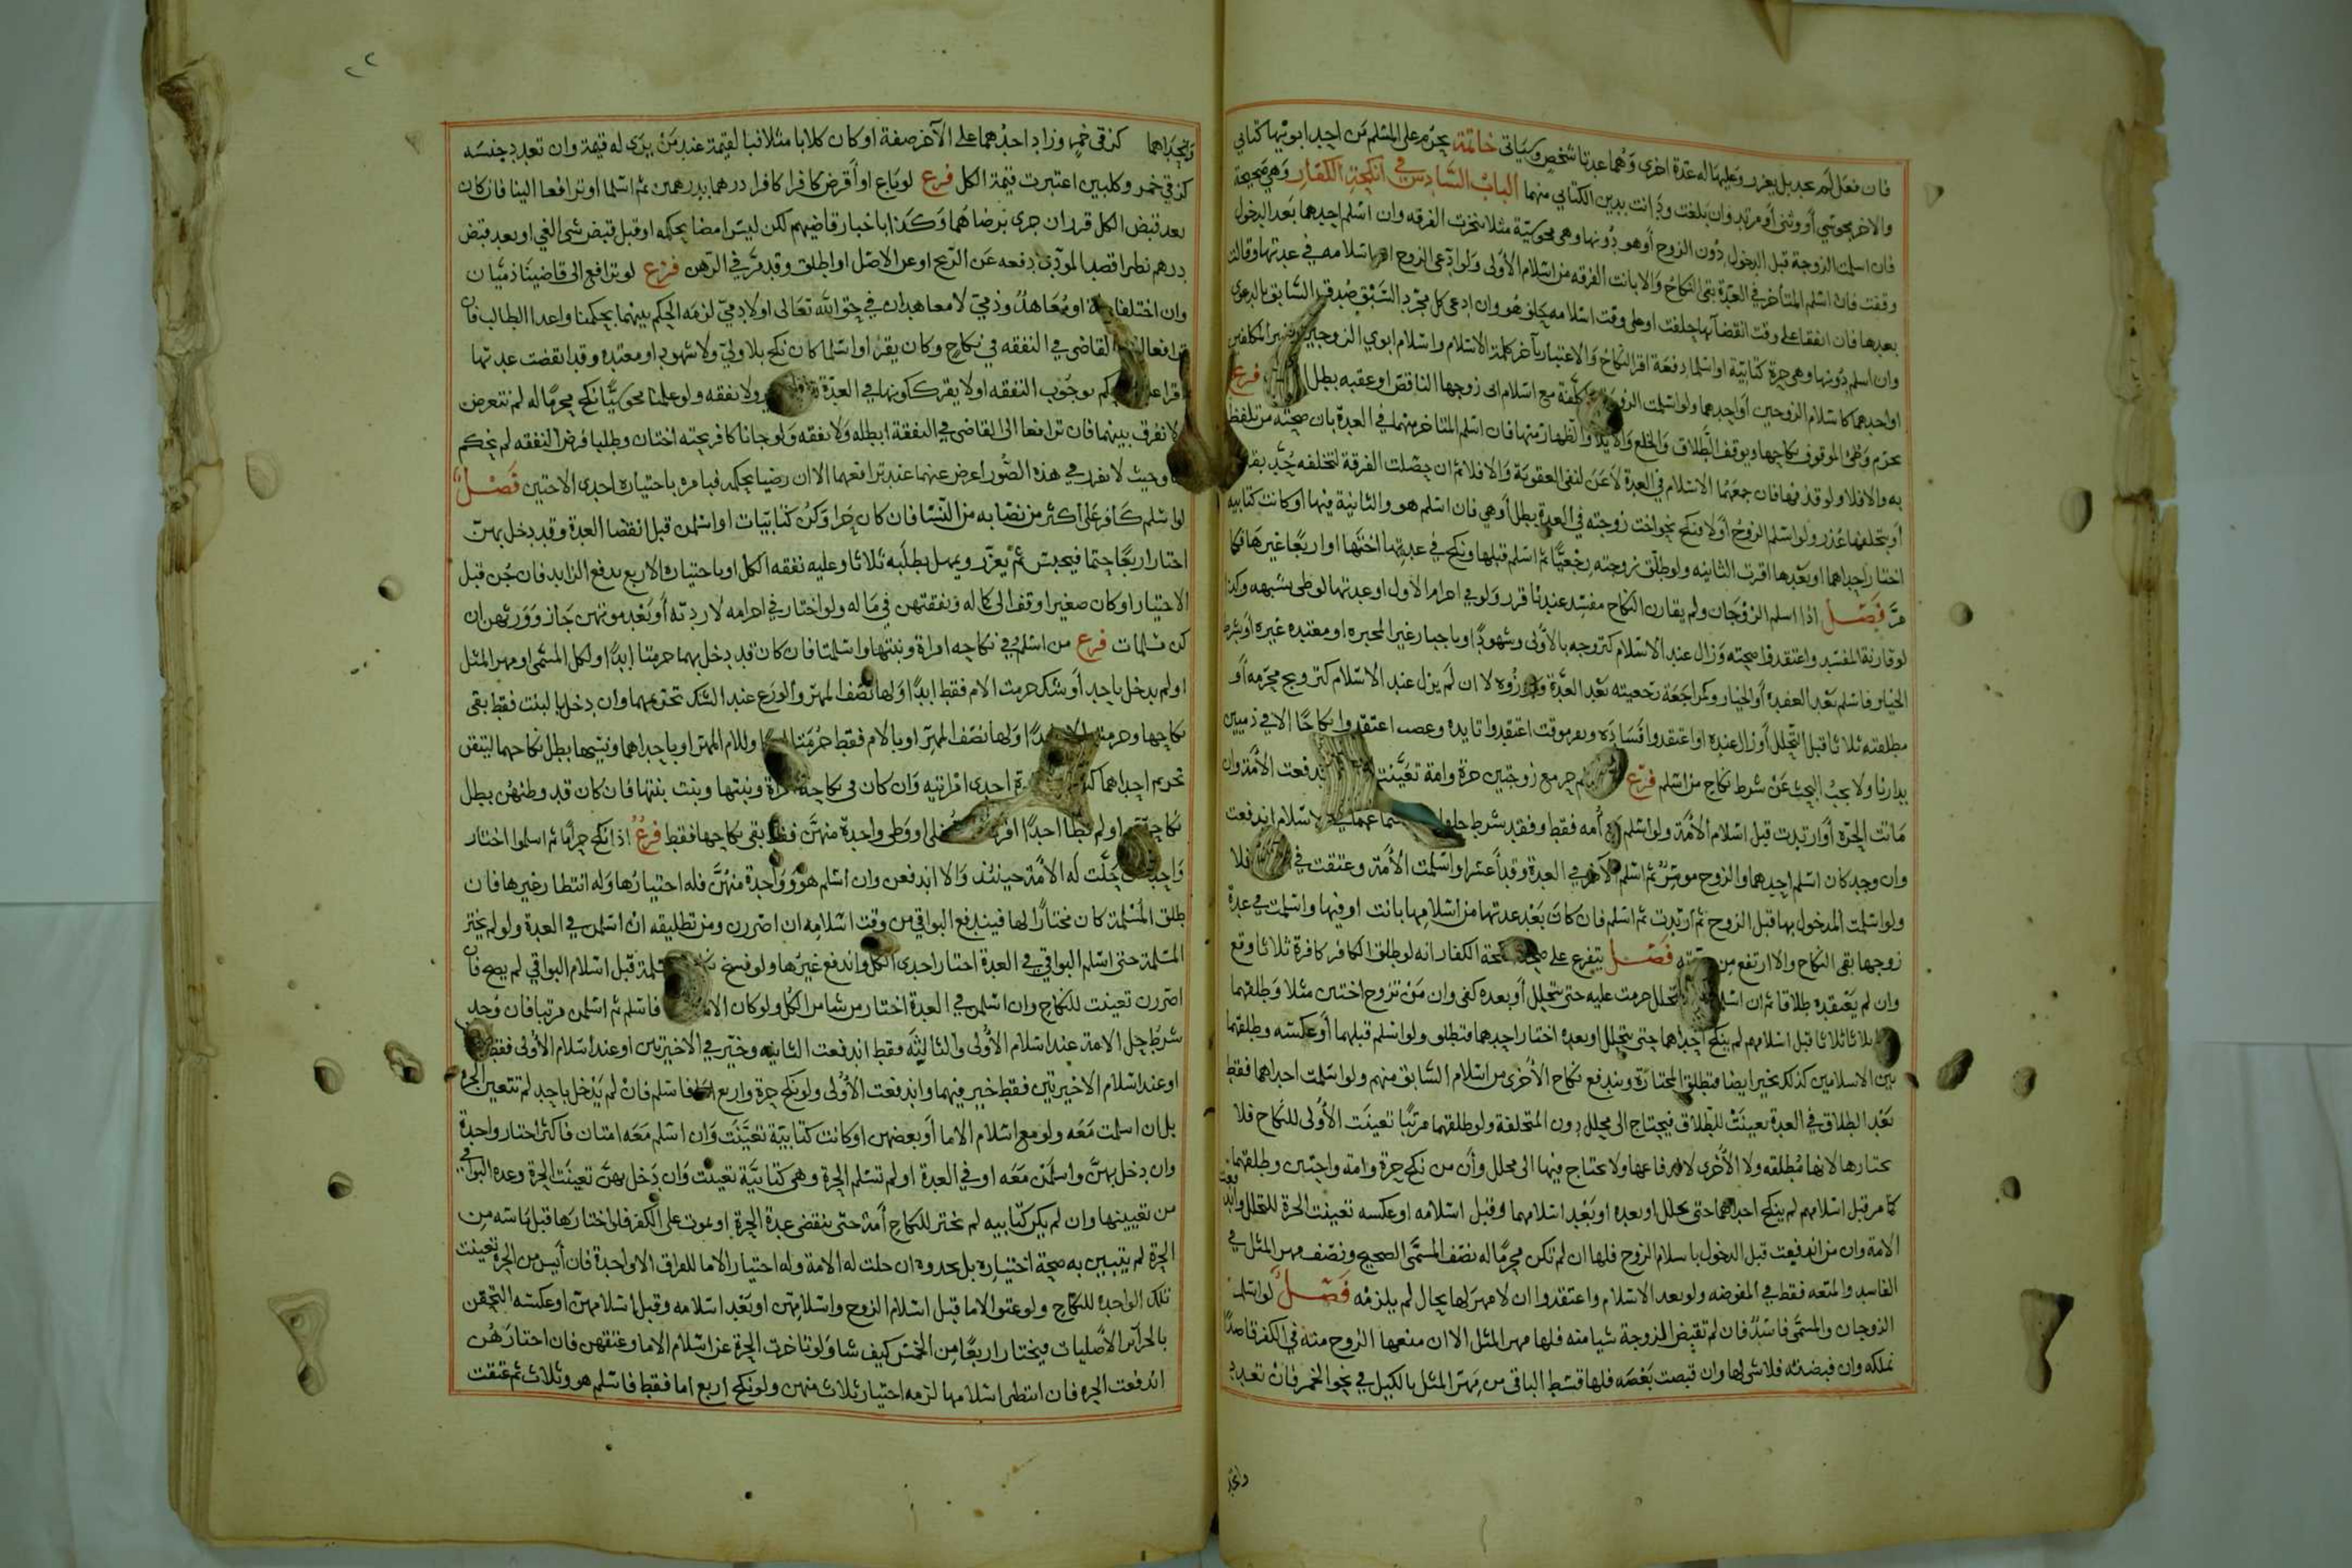 فان فعل لم يحد بل يعزر وعليها له عدة اخرى وهما عدتا شخص وسياتي خاتمة يحرم على المسلم من احد ابويها كتابي
والاخر مجوسي أو وثني أو مرتد وان بلغت ودانت بدين الكتابي منهما الباب السادس في انكحة الكفار وهي صحيحة
فان اسلمت الزوجة قبل الدخول دون الزوج أو هو دونها وهي مجوسية مثلا تنجزت الفرقه وان اسلم احدهما بعد الدخول
وقفت فان اسلم المتاخر في العدة بقي النكاح والا بانت الفرقه من اسلام الأولى ولو ادعى الزوج اسلامه في عدتها وقالت
بعدها فان اتفقا على وقت انقضائها حلفت او على وقت اسلامه حلف هو وان ادعى كل مجرد السبق صدق السابق بالدعوى
وان اسلم دونها وهي حرة كتابية او اسلما دفعة اقر النكاح والاعتبار بآخر كلمة الاسلام واسلام ابوي الزوجين
او احدهما كاسلام الزوجين أو احدهما ولو اسلمت الزوجة مع اسلام ابي زوجها الناقص او عقبه بطل فرع
يحرم وطئ الموقوف نكاحها ويوقف الطلاق والخلع والايلاء والظهار منها فان اسلم المتاخر منهما في العدة بان صحته من تلفظ
به والا فلا ولو قذفها فان جمعهما الاسلام في العدة لاعن لنفي العقوبة والا فلا ثم ان حصلت الفرقة لتخلفه حد
أو بتخلفها عزر ولو اسلم الزوج أولا فنكح نحو اخت زوجته في العدة بطل أو هي فان اسلم هو والثانية فيها او كانت كتابيه
اختار احداهما او بعدها اقرت الثانيه ولو طلق زوجته رجعيا ثم اسلم قبلها ونكح في عدتها اختها او اربعا غيرها فكما
مر فصل اذا اسلم الزوجان ولم يقارن النكاح مفسد عندنا قرر ولو في احرام الأول او عدتها لوطى بشبهه وكذا
لو قارنة المفسد واعتقدوا صحته وزال عند الاسلام كتزوجه بلا ولي وشهود او باجبار غير المجبره او معتده غيره او بشرط
الخيار فاسلم بعد العدة أو الخيار وكمراجعة رجعيته بعد العدة لا ان لم يزل عند الاسلام كتزويج محرمه أو
مطلقته ثلاثا قبل التحلل أو زال عنده او اعتقدوا فساده ونقر موقت اعتقدوا تابيده وغصب اعتقدوا نكاحا الا في ذميين
بدارنا ولا يجب البحث عن شرط نكاح من اسلم فرع حر مع زوجتين حرة وامة تعينت اندفعت الأمة وان
ماتت الحرة أو ارتدت قبل اسلام الأمة ولو اسلم مع أمه فقط وفقد شرط حلها الاسلام اندفعت
وان وجد كان اسلم احدهما والزوج موسر ثم اسلم الآخر في العدة وقد أعسر او اسلمت الأمة وعتقت في فلا
ولو اسلمت المدخول بها قبل الزوج ثم ارتدت ثم اسلم فان كانت بعد عدتها من اسلامها بانت او فيها واسلمت في عدة
زوجها بقى النكاح والا ارتفع من فصل يتفرع على صحة انكحة الكفار انه لو طلق الكافر كافرة ثلاثا وقع
وان لم يعتقده طلاقا ثم ان اسلما التحلل حرمت عليه حتى يتحلل أو بعده كفى وان من تزوج اختين مثلا وطلقهما
ثلاثا ثلاثا قبل اسلامهم لم ينكح احداهما حتى يتحلل او بعده اختار احدهما فتطلق ولو اسلم قبلهما أو عكسه وطلقهما
بين الاسلامين كذلك تخير ايضا فتطلق المختارة ويندفع نكاح الأخرى من اسلام السابق منهم ولو اسلمت احداهما فقط
بعد الطلاق في العدة تعينت للطلاق فيحتاج الى محلل دون المتخلفة ولو طلقهما مرتبا تعينت الأولى للنكاح فلا
يختارها لانها مطلقه ولا الأخرى لاندفاعها ولا يحتاج فيها الى محلل وأن من نكح حرة وامة واختين وطلقهما
كما مر قبل اسلامهم لم ينكح احداهما حتى يحلل او بعده او بعد اسلامهما وقبل اسلامه او عكسه تعينت الحرة للتحلل واندفعت
الامة وان من اندفعت قبل الدخول باسلام الزوج فلها ان لم تكن محرما له نصف المسمى الصحيح ونصف مهر المثل في
الفاسد والمتعه فقط في المفوضه ولو بعد الاسلام واعتقدوا ان لا مهر لها بحال لم يلزمه فصل لو اسلم
الزوجان والمسمى فاسد فان لم تقبض الزوجة شيا منه فلها مهر المثل الا ان منعها الزوج منه في الكفر قاصدا
تملكه وان قبضته فلا شي لها وان قبضت بعضه فلها قسط الباقي من مهر المثل بالكيل في نحو الخمر فان تعدد
٢٢
كزقي خمر وزاد احدهما على الآخر صفة او كان كلابا مثلا فبالقيمة عند من يرى له قيمة وان تعدد جنسه
كزقي خمر وكلبين اعتبرت قيمة الكل فرع لو باع او أقرض كافر كافرا درهما بدرهمين ثم اسلما او ترافعا الينا فان كان
بعد قبض الكل قرر ان جرى برضاهما وكذا باخبار قاضيهم لكن ليس امضا بحكمه او قبل قبض شى الغي او بعد قبض
درهم نظر اقصد المودى دفعه عن الربح او عن الاصل او اطلق وقد مر في الرهن فرع لو ترافع الى قاضينا ذميان
وان اختلفا او معاهد وذمي لا معاهدان في حق الله تعالى او لادمي لزمه الحكم بينهما بحكمنا واعدا الطالب فان
ترافعا القاضي في النفقه في نكاح وكان يقر او اسلما كان نكح بلا ولي ولا شهود او معتدة وقد انقضت عدتها
بوجوب النفقه او لا يقر ككونها في العدة ولا نفقه ولو علمنا مجوسيا نكح محرما له لم نتعرض
فان ترافعا الى القاضي في النفقة ابطله ولا نفقه ولو جانا كافر تحته اختان وطلبا فرض النفقه لم يحكم
وحيث لا نقر في هذه الصور اعرض عنهما عند ترافعهما الا ان رضيا بحكمه فيامره باختياره احدى الاختين فصل
لو اسلم كافر على أكثر من نصابه من النسا فان كان حرا وكن كتابيات او اسلمن قبل انقضا العدة وقد دخل بهن
اختار اربعا حتما فيحبس ثم يعزر ويمهل بطلبه ثلاثا وعليه نفقه الكل او باختياره الاربع يدفع الزايد فان جن قبل
الاختيار او كان صغيرا وقف الى كماله ونفقتهن في ماله ولو اختار في احرامه لا ردته أو بعد موتهن جاز وورثهن ان
كن مسلمات فرع من اسلم في نكاحه امراة وبنتها واسلمتا فان كان قد دخل بهما حرمتا ابدا ولكل المسمى او مهر المثل
او لم يدخل باحد أو شك حرمت الام فقط ابدا ولها نصف المهر والورع عند الشك تحريمهما وان دخل بالبنت فقط بقى
نكاحها وحرمت الام ابدا ولها نصف المهر او بالام فقط حرمتا وللام المهر او باحداهما ونسيها بطل نكاحهما لتيقن
تحريم احداهما احدى امراتيه وان كان في نكاحه امراة وبنتها وبنت بنتها فان كان قد وطئهن بطل
او لم يطا احدا او وطى واحدة منهن فقط بقي نكاحها فقط فرع اذا نكح حر إماء ثم اسلموا اختار
واحدة حلت له الأمة حينئذ والا اندفعن وان اسلم هو وواحدة منهن فله اختيارها وله انتظار غيرها فان
طلق المسلمة كان مختارا لها فيندفع البواقي من وقت اسلامه ان اصررن ومن تطليقه ان اسلمن في العدة ولو لم يختر
المسلمة حتى اسلم البواقي في العدة اختار احدى الكل واندفع غيرها ولو فسخ المسلمة قبل اسلام البواقي لم يصح فان
اصررن تعينت للنكاح وان اسلمن في العدة اختار من شا من الكل ولو كان فاسلم ثم اسلمن مرتبا فان وجد
شرط حل الامة عند اسلام الأولى والثالثة فقط اندفعت الثانيه وخير في الاخيرتين او عند اسلام الأولى فقط
او عند اسلام الاخيرتين فقط خير فيهما واندفعت الأولى ولو نكح حرة واربع اماء فاسلم فان لم يدخل باحد لم تتعين الحرة
بل ان اسلمت معه ولو مع اسلام الاما أو بعضهن او كانت كتابية تعينت وان اسلم معه امتان فاكثر اختار واحدة
وان دخل بهن واسلمن معه او في العدة او لم تسلم الحرة وهي كتابية تعينت وان دخل بهن تعينت الحرة وعده البواقي
من تعيينها وان لم يكن كتابيه لم يختر للنكاح أمة حتى ينقضى عدة الحرة او يموت على الكفر فلو اختارها قبل ياسه من
الحرة لم يتبين به صحة اختياره بل يجدده ان حلت له الامة وله اختيار الاما للفراق الا واحدة فان أيس من الحرة تعينت
تلك الواحده للنكاح ولو عتق الاما قبل اسلام الزوج واسلامهن او بعد اسلامه وقبل اسلامهن او عكسه التحقن
بالحراير الأصليات فيختار اربعا من الخمس كيف شا ولو تاخرت الحرة عن اسلام الاما وعتقهن فان اختارهن
اندفعت الحره فان انتظر اسلامها لزمه اختيار ثلاث منهن ولو نكح اربع اما فقط فاسلم هو وثلاث ثم عتقت